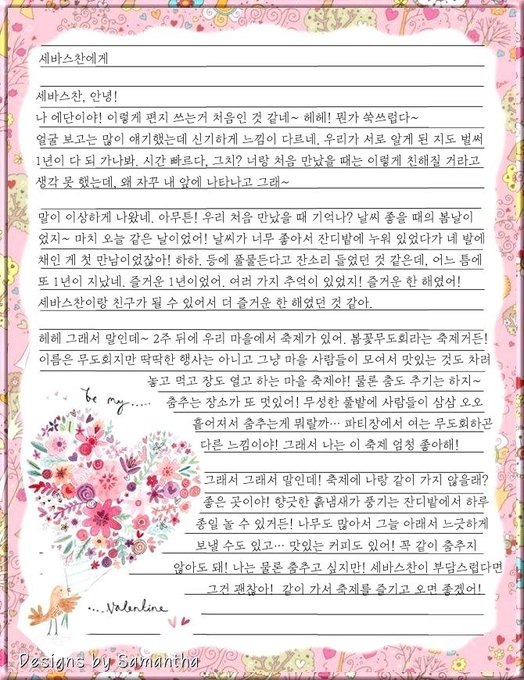 세바스찬에게
세바스찬, 안녕!
나 에단이야! 이렇게 편지 쓰는거 처음인 것 같네~ 헤헤! 뭔가 쑥쓰럽다~
얼굴 보고는 많이 얘기했는데 신기하게 느낌이 다르네. 우리가 서로 알게 된 지도 벌써
1년이 다 되 가나봐. 시간 빠르다, 그치? 너랑 처음 만났을 때는 이렇게 친해질 거라고
생각 못 했는데, 왜 자꾸 내 앞에 나타나고 그래~
말이 이상하게 나왔네. 아무튼! 우리 처음 만났을 때 기억나? 날씨 좋을 때의 봄날이
었지~ 마치 오늘 같은 날이었어! 날씨가 너무 좋아서 잔디밭에 누워 있었다가 네 발에
채인 게 첫 만남이었잖아! 하하. 등에 풀물든다고 잔소리 들었던 것 같은데, 어느 틈에
또 1년이 지났네. 즐거운 1년이었어. 여러 가지 추억이 있었지! 즐거운 한 해였어!
세바스찬이랑 친구가 될 수 있어서 더 즐거운 한 해였던 것 같아.
헤헤 그래서 말인데~ 2주 뒤에 우리 마을에서 축제가 있어. 봄꽃무도회라는 축제거든!
이름은 무도회지만 딱딱한 행사는 아니고 그냥 마을 사람들이 모여서 맛있는 것도 차려
놓고 먹고 장도 열고 하는 마을 축제야! 물론 춤도 추기는 하지~
춤추는 장소가 또 멋있어! 무성한 풀밭에 사람들이 삼삼 오오
흩어져서 춤추는게 뭐랄까… 파티장에서 여는 무도회하곤
다른 느낌이야! 그래서 나는 이 축제 엄청 좋아해!
그래서 그래서 말인데! 축제에 나랑 같이 가지 않을래?
좋은 곳이야! 향긋한 흙냄새가 풍기는 잔디밭에서 하루
종일 놀 수 있거든! 나무도 많아서 그늘 아래서 느긋하게
보낼 수도 있고… 맛있는 커피도 있어! 꼭 같이 춤추지
않아도 돼! 나는 물론 춤추고 싶지만! 세바스찬이 부담스럽다면
그건 괜찮아! 같이 가서 축제를 즐기고 오면 좋겠어!
be my.....
....valentine
Designs by Samantha